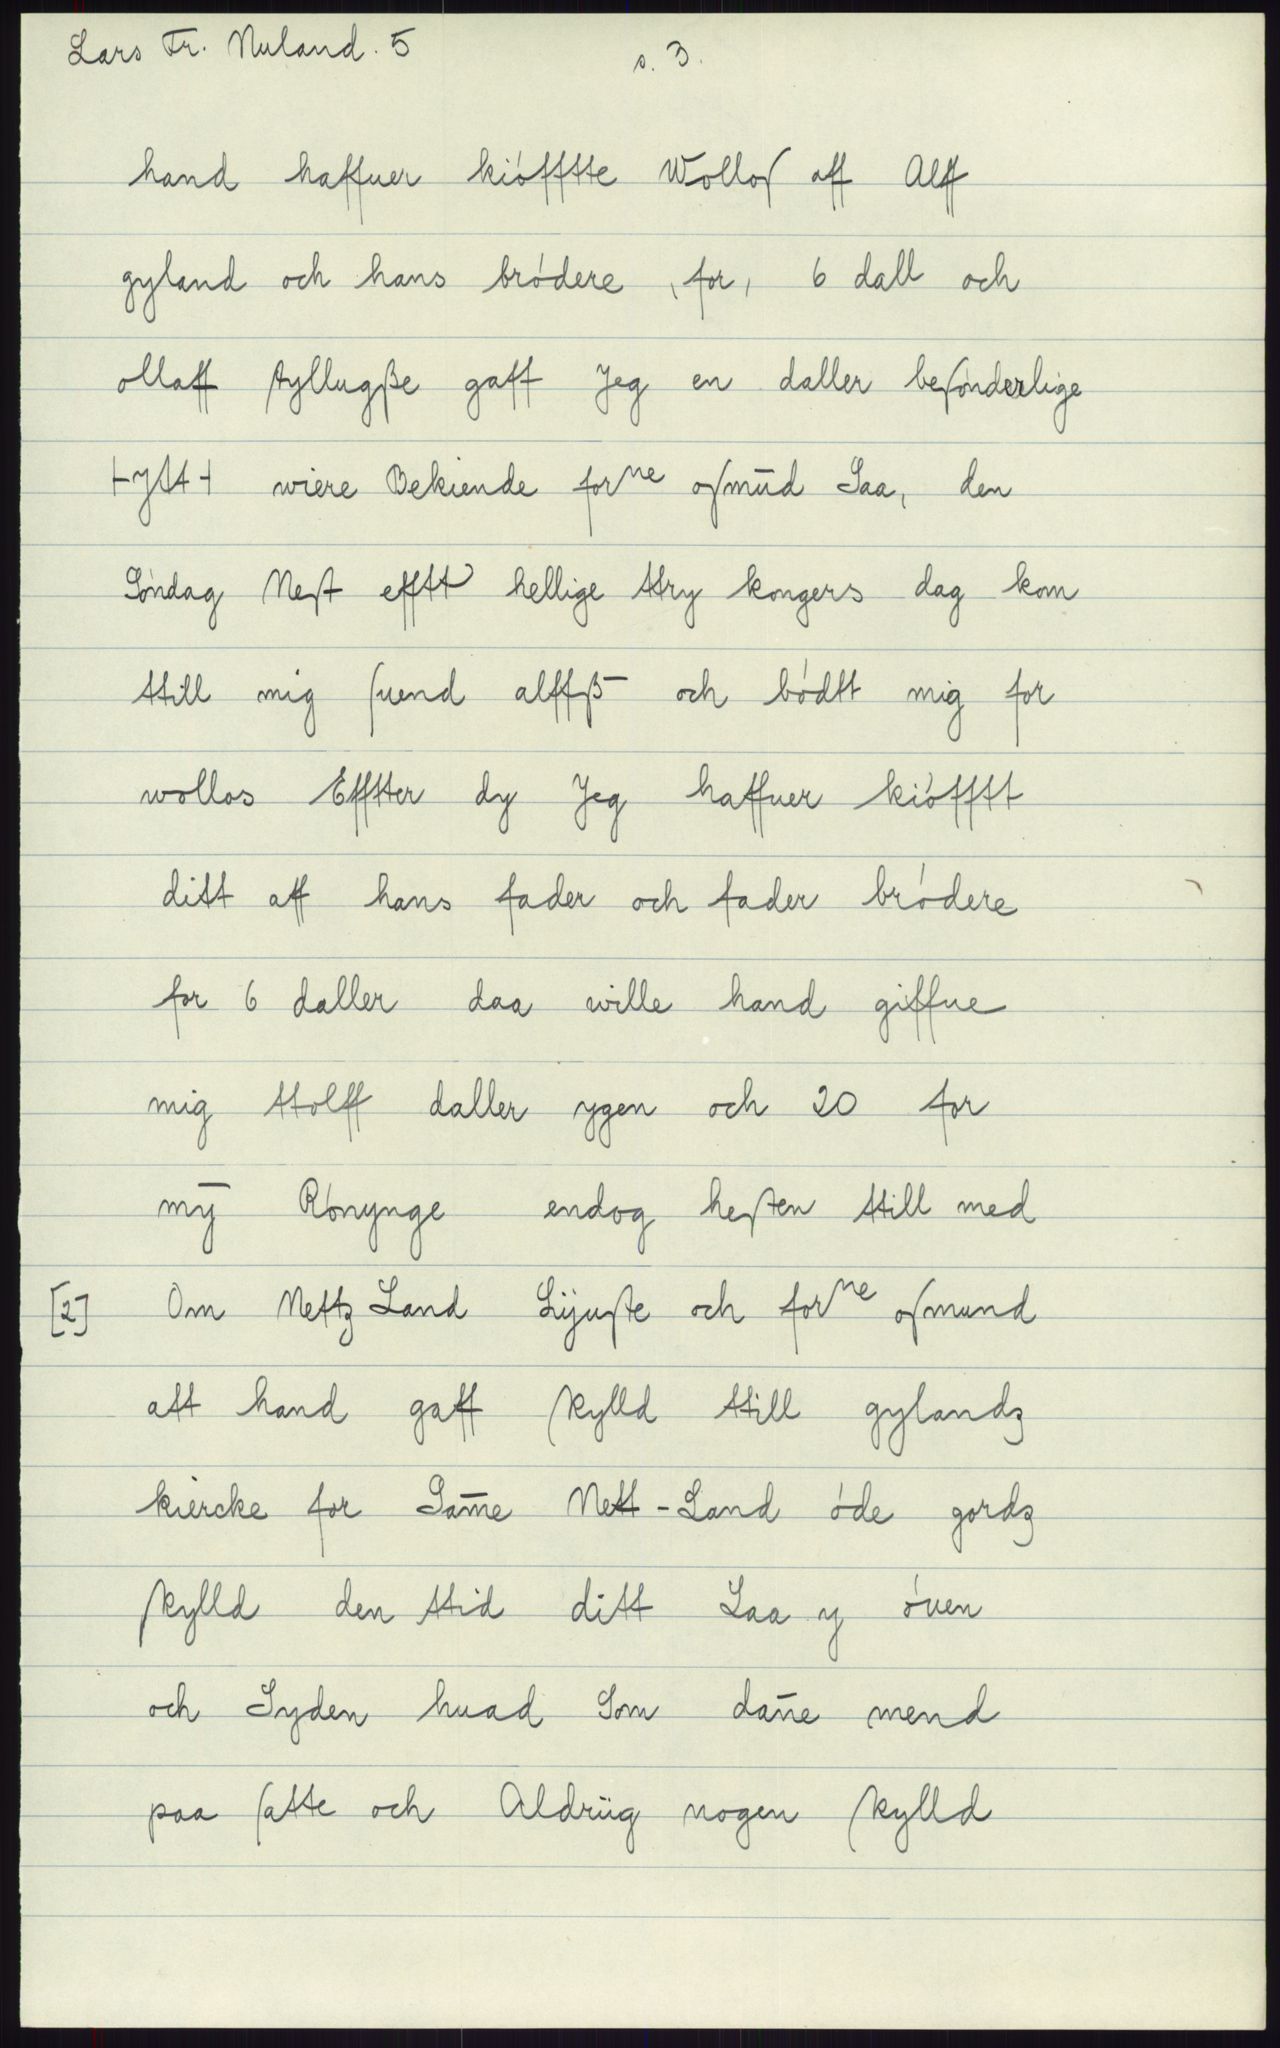 Lars Fr. Nuland. 5
s. 3.
hand haffuer kiófftte Wolloſ aff Alff
gyland och hans bródere, for, 6 dall och
ollaff tyllugße gaff Jeg en daller beſónderlige
wiere Bekiende forne oſmūd Saa, den
Sóndag Neſt efftt hellige ttry kongers dag kom
ttill mig ſuend alffß och bódtt mig for
wollos Efftter dy Jeg haffuer kiófftt
ditt aff hans fader och fader bródere
for 6 daller daa wille hand giffue
mig ttolff daller ygen och 20 for
mȳ Rónynge endog heſten ttill med
[2] Om Nettz Land Lijuſte och forne oſmund
att hand gaff ſkylld ttill gylandz
kiercke for Sam̄e Nett-Land óde gordz
ſkylld den ttid ditt Laa y óuen
och Syden huad Som dan̄e mend
paa ſatte och Aldriig nogen ſkylld